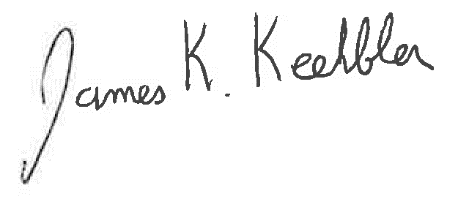 James K. Keehbler